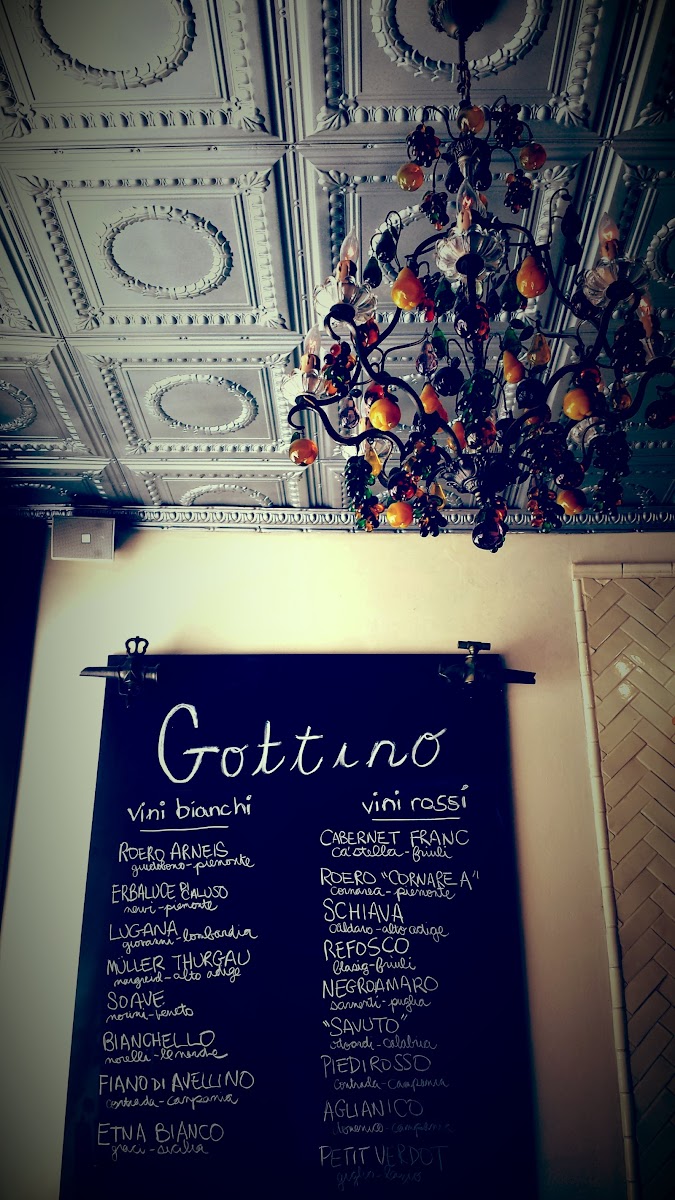 Gottino
vini bianchi
ROERO ARNEIS
guidobono-piemonte
ERBALUCE DI CALUSO
piemonte
LUGANA
giovanni-lombardia
MÜLLER THURGAU
nargreid-alto adige
SOAVE
veneto
BIANCHELLO
morelli-le marche
FIANO DI AVELLINO
contrada-campania
ETNA BIANCO
graci-sicilia
vini rossi
CABERNET FRANC
ca'stella-friuli
ROERO "CORNAREA"
cornarea-piemonte
SCHIAVA
caldaro-alto adige
REFOSCO
blasig-friuli
NEGROAMARO
sarmenti-puglia
"SAVUTO"
odoardi-calabria
PIEDIROSSO
contrada-campania
AGLIANICO
domenico-campania
PETIT VERDOT